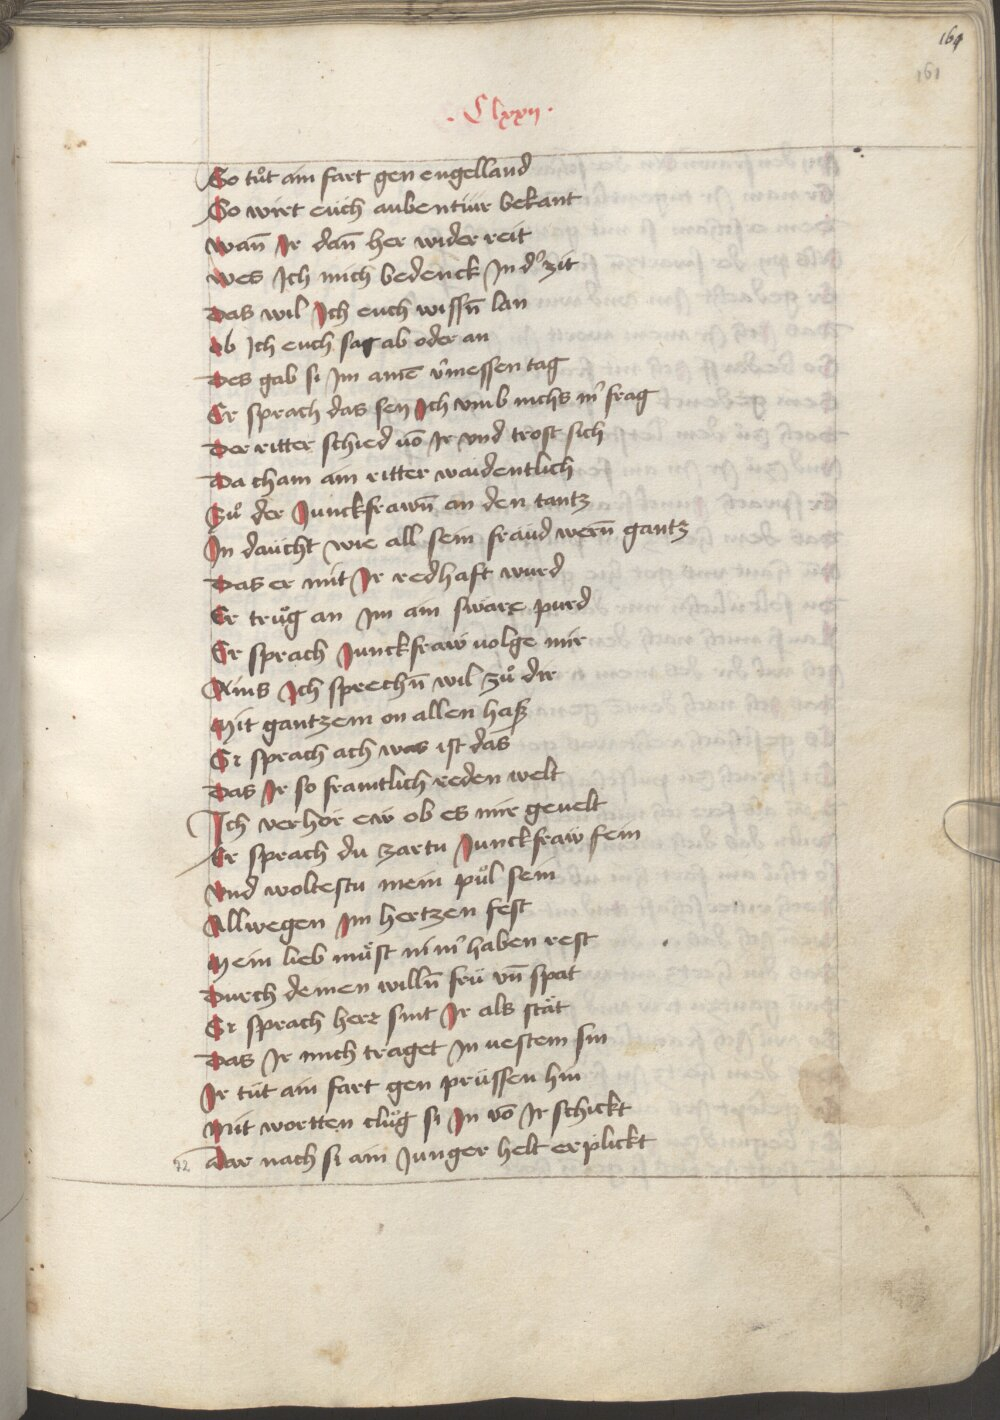 164
161
· Clxxij ·
So tuͦt ain fart gen engelland
So wirt eüch aubentüir bekant
wan̄ Ir dan̄ her wider reit
wes Ich mich bedenck In dˀ zit
Das wil Ich euch wissn̄ lan
Ob Ich euch sag ab oder an
Des gab si Im ainē vˀmessen tag
Er sprach das sey Ich vmb nichs mˀ frag
Der ritter schied vō Ir vnd trost sich
Da cham ain ritter waidentlich
Zuͦ der Junckfrawn̄ an den tantz
In daücht wie all sein fräud wern̄ gantz
Das er mit Ir redhaft wurd
Er truͦg an Im ain swäre purd
Er sprach Junckfraw volge mir
Ains Ich sprechn̄ wil zuͦ dir
Mit gantzem on allen haß
Er sprach ach was ist das
Das Ir so framtlich reden welt
Ich verhör ew ob es mir geuelt
Er sprach du zartu Junckfraw fein
Vnd woltestu mein puͦl sein
Allwegen Im hertzen fest
Mein lieb muͤst nimˀ haben rest
Durch deinen willn̄ frü vn̄ spat
Er sprach herr sint Ir als stät
Das Ir mich traget In uestem sin
Ir tüt ain fart gen prüssen hin
Mit wortten cluͦg si In vō Ir schickt
72 Dar nach si ain Junger helt erplickt